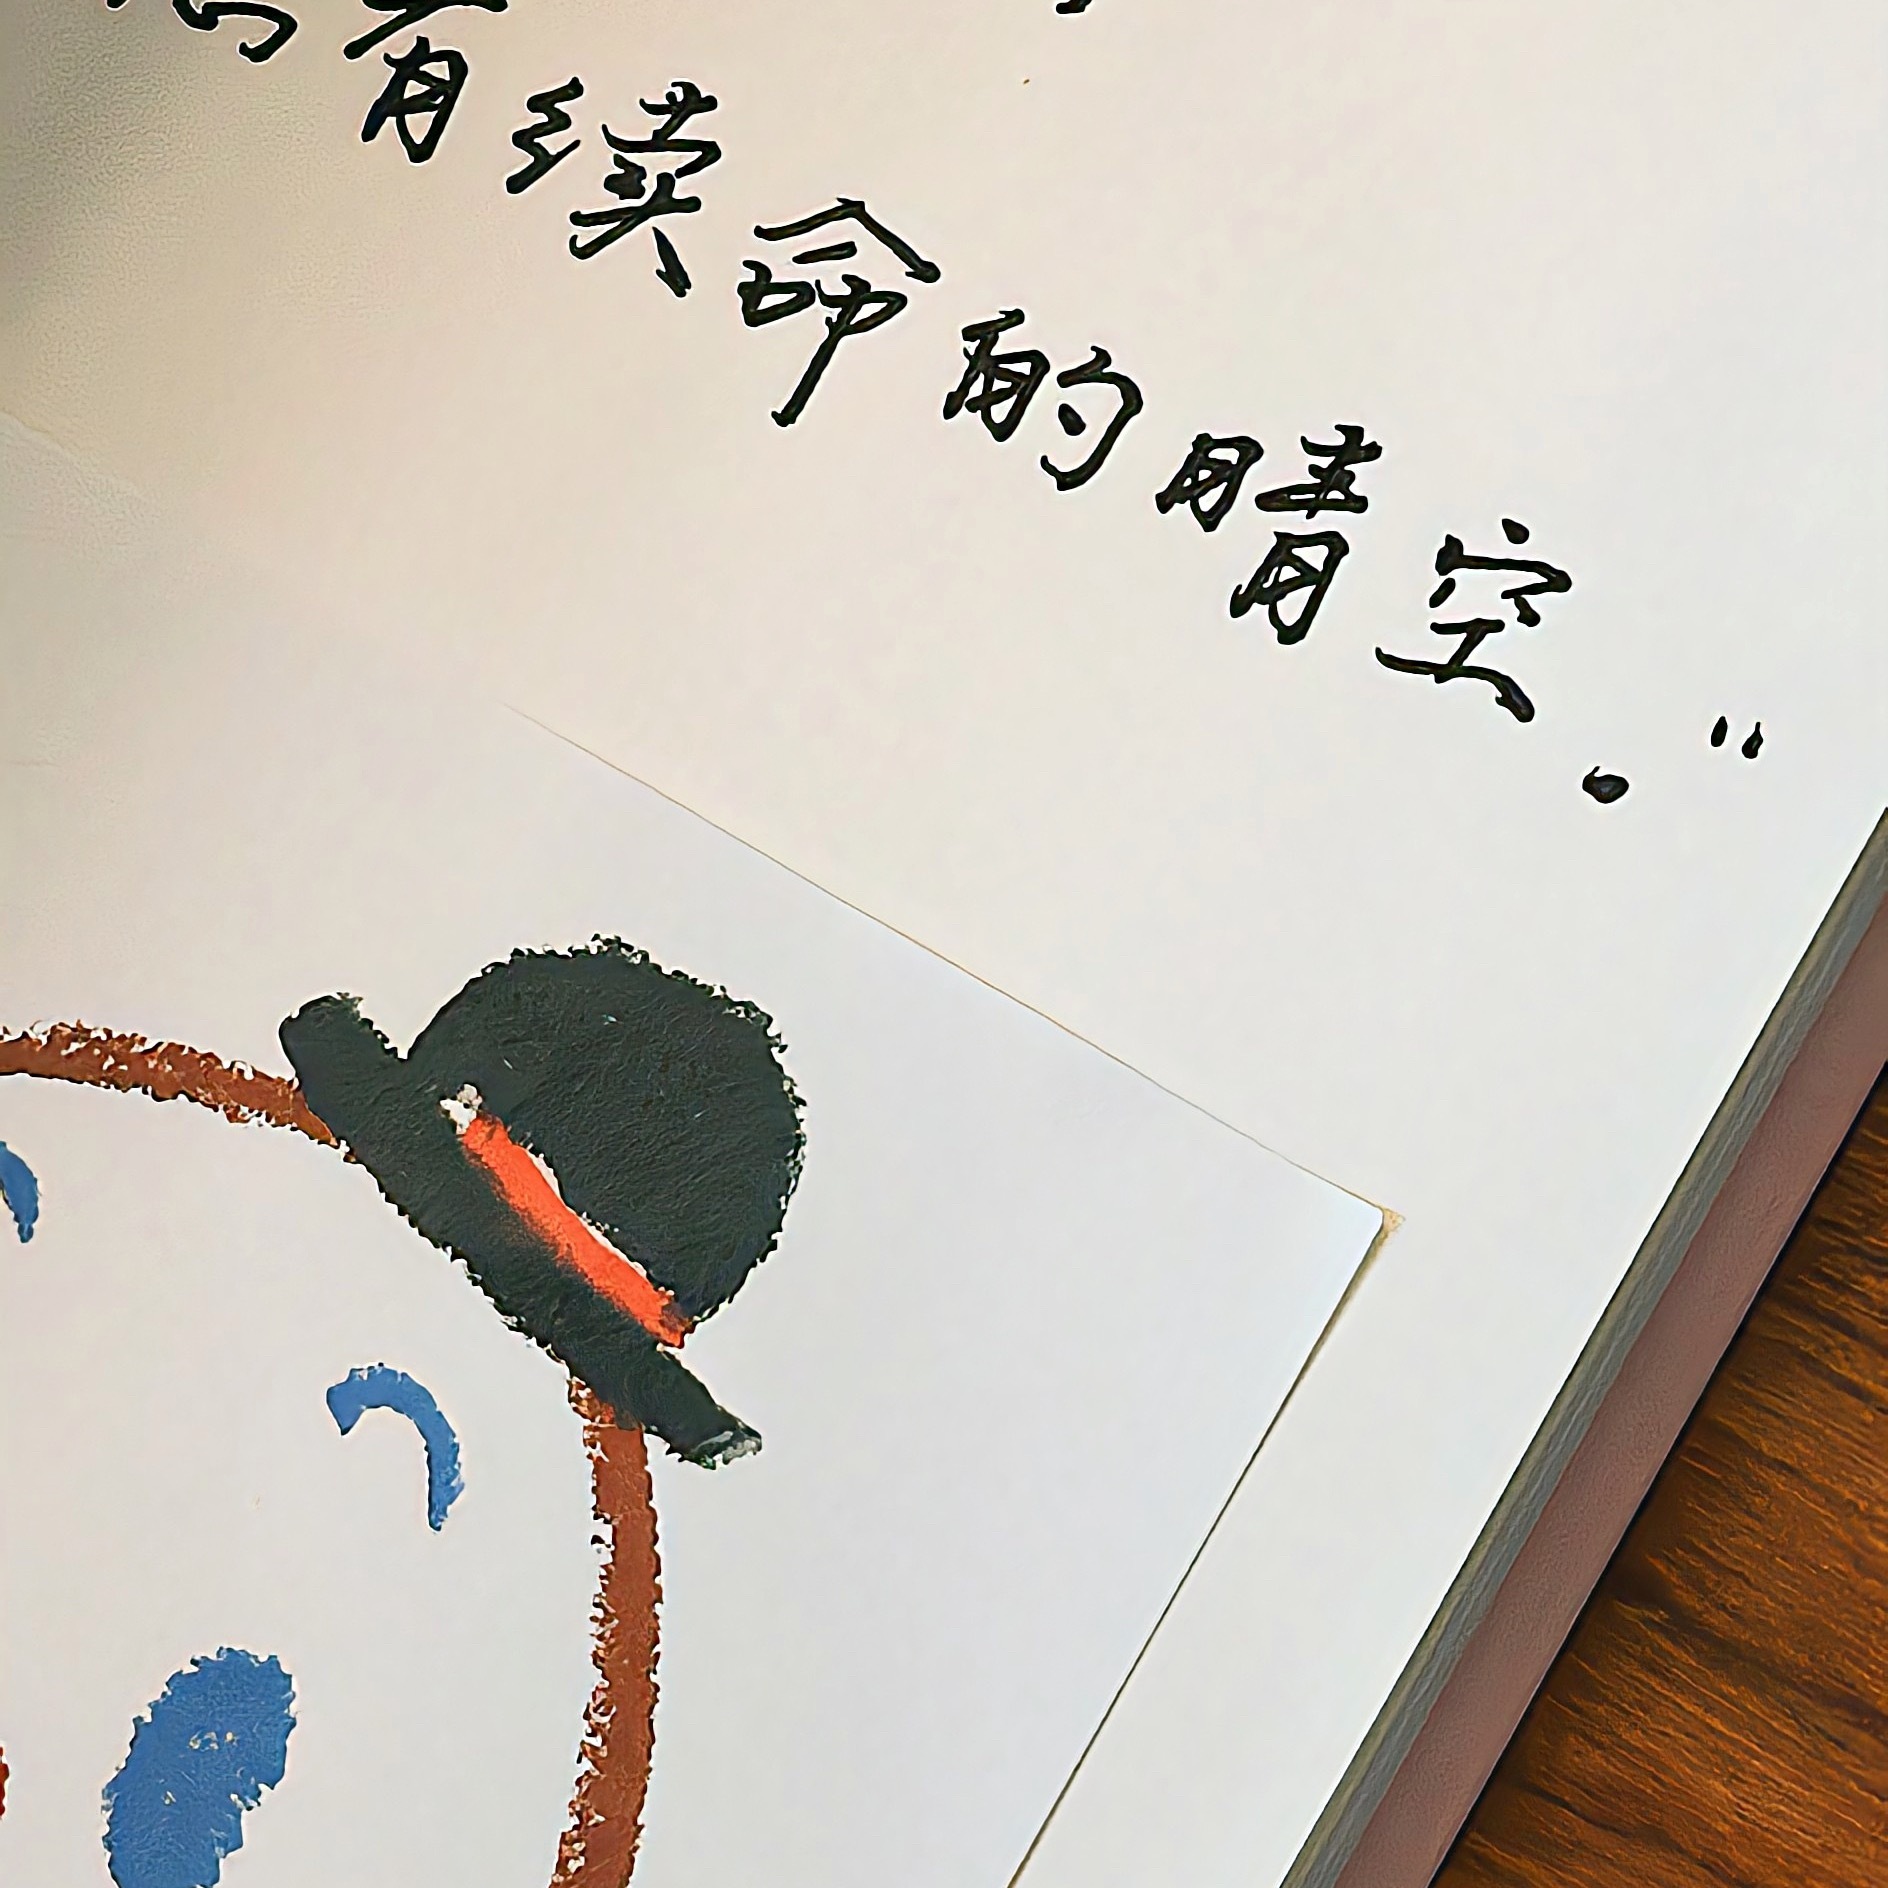 有续命的晴空。”